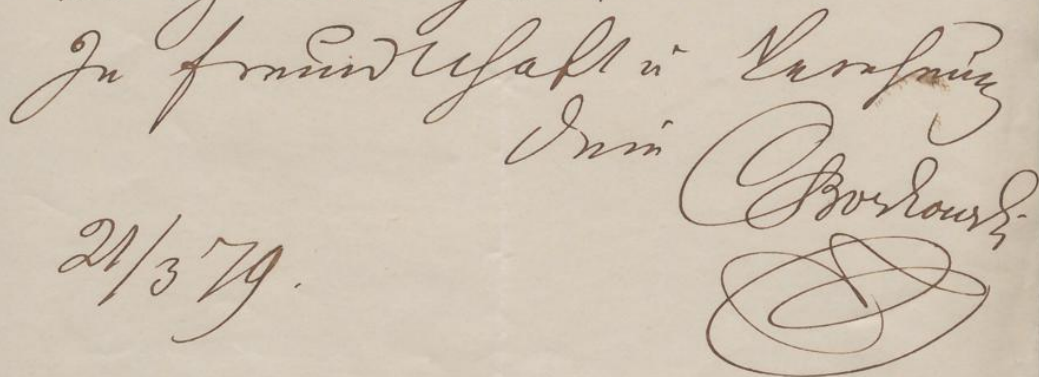 In Freundschaft u Verehrung
Dein
CBorkowski
21/3 79.